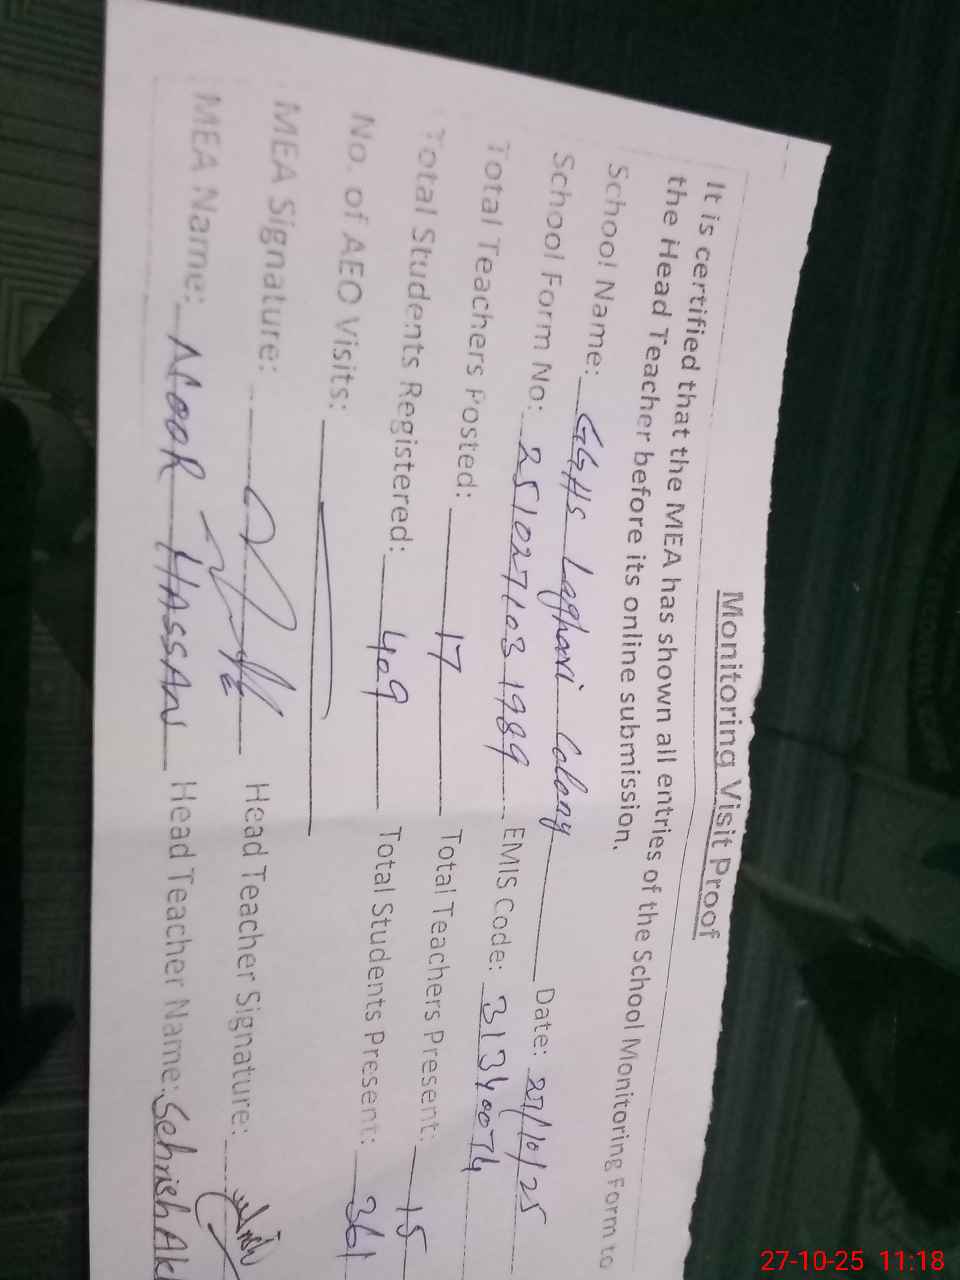 Monitoring Visit Proof
It is certified that the MEA has shown all entries of the School Monitoring Form to
the Head Teacher before its online submission.
School Name: GGHS Laghari Colony Date: 27/10/25
School Form No: 251027103 1989 EMIS Code: 31340074
Total Teachers Posted: 17 Total Teachers Present: 15
Total Students Registered: 409 Total Students Present: 361
No. of AEO Visits:
MEA Signature: Head Teacher Signature:
MEA Name: NOOR HASSAN Head Teacher Name: Sehrish
27-10-25 11:18